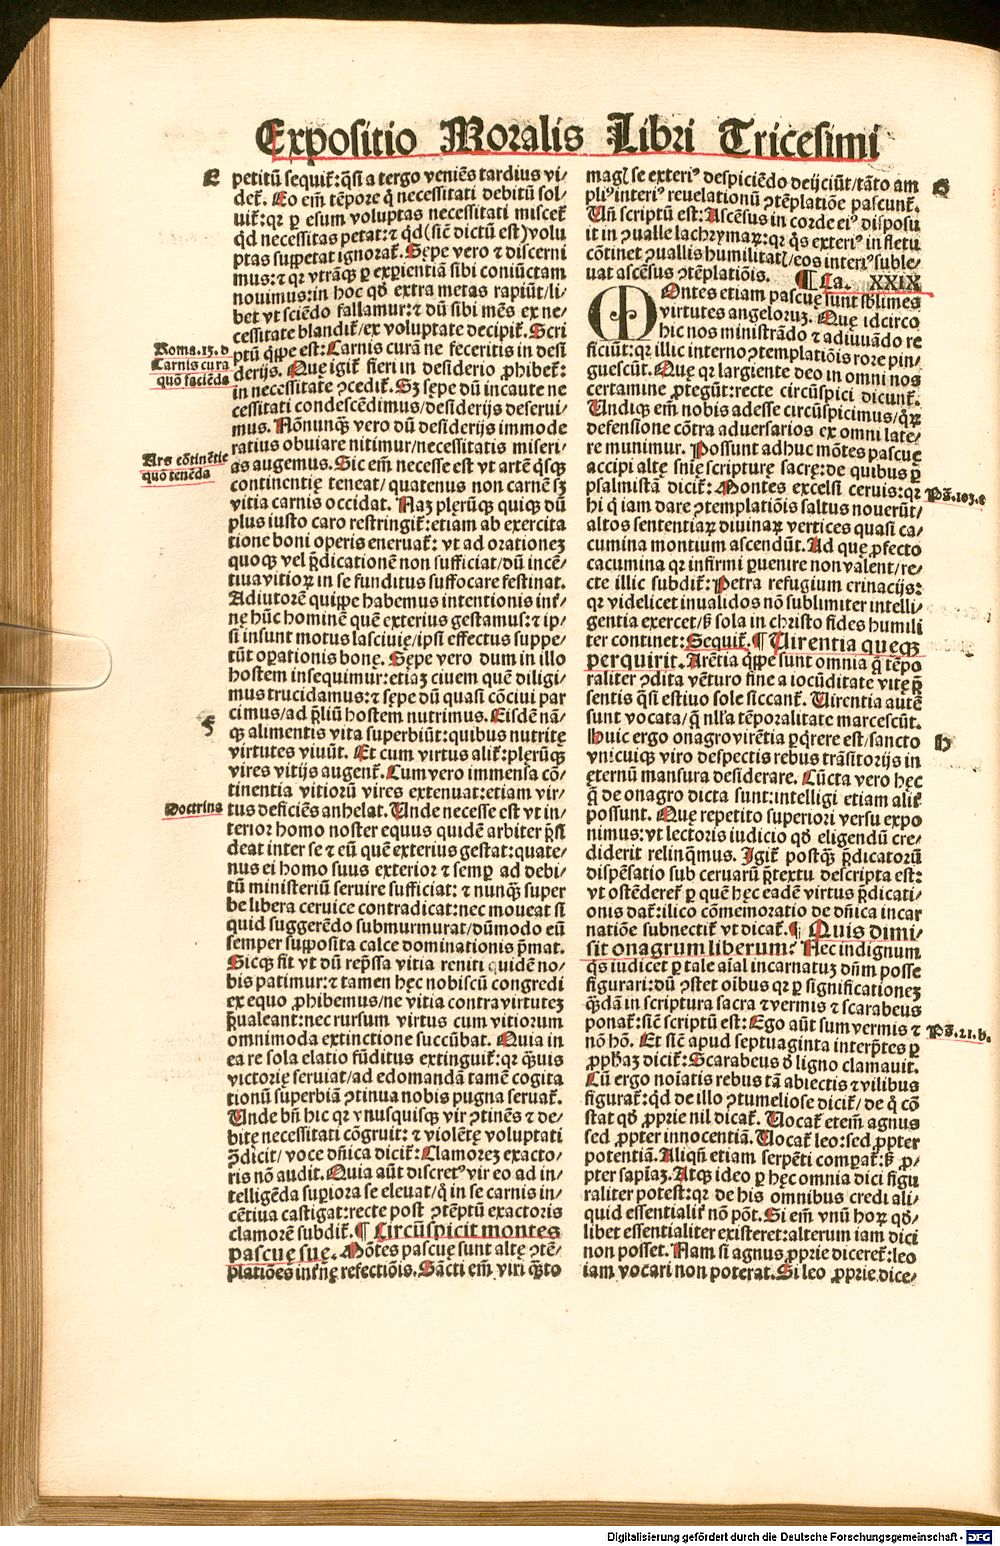 Expositio Moralis Libri Tricesimi
E
petitū sequit᷑: q̄si a tergo veniēs tardius vi/
det᷑. Eo em̄ tēpore q̇ necessitati debitū sol/
uit᷑: qꝛ ꝑ esum voluptas necessitati miscet᷑
qd̄ necessitas petat: ⁊ qd̄ (sic̄ dictū est) volu
ptas suppetat ignorat᷑. Sępe vero ⁊ discerni
mus: ⁊ qꝛ vtrāqꝫ ꝑ expientiā sibi coniūctam
nouimus: in hoc qd̓ extra metas rapiūt/li/
bet vt sciēdo fallamur: ⁊ dū sibi mēs ex ne/
cessitate blandit᷑/ex voluptate decipit᷑. Scri
ptū q̇ppe est: Carnis curā ne feceritis in desi
derijs. Que igit᷑ fieri in desiderio ꝓhibet᷑:
in necessitate ꝯcedit᷑. Sꝫ sępe dū incaute ne
cessitati condescēdimus/desiderijs deserui/
mus. Nōnunqꝫ vero dū desiderijs immode
ratius obuiare nitimur/necessitatis miseri/
as augemus. Sic em̄ necesse est vt artē q̇sqꝫ
continentię teneat/quatenus non carnē sꝫ
vitia carnis occidat. Naꝫ plęrūqꝫ quiqꝫ dū
plus iusto caro restringit᷑: etiam ab exercita
tione boni operis eneruat᷑: vt ad orationeꝫ
quoqꝫ vel p̄dicationē non sufficiat/dū incē/
tiua vitioꝝ in se funditus suffocare festinat.
Adiutorē quippe habemus intentionis int᷑/
nę hūc hominē quē exterius gestamus: ⁊ ip/
si insunt motus lasciuię/ipsi effectus suppe/
tūt oꝑationis bonę. Sępe vero dum in illo
hostem insequimur: etiaꝫ ciuem quē diligi/
mus trucidamus: ⁊ sępe dū quasi cōciui par
cimus/ad p̄liū hostem nutrimus. Eisdē nā/
qꝫ alimentis vita superbiūt: quibus nutritę
virtutes viuūt. Et cum virtus alit᷑: plerūqꝫ
vires vitijs augent᷑. Cum vero immensa cō/
tinentia vitiorū vires extenuat: etiam vir/
tus deficiēs anhelat. Unde necesse est vt in/
terior homo noster equus quidē arbiter p̄si
deat inter se ⁊ eū quē exterius gestat: quate/
nus ei homo suus exterior ⁊ semꝑ ad debi/
tū ministeriū seruire sufficiat: ⁊ nunqꝫ super
be libera ceruice contradicat: nec moueat si
quid suggerēdo submurmurat/dūmodo eū
semper supposita calce dominationis p̄mat.
Sicqꝫ fit vt dū rep̄ssa vitia reniti quidē no/
bis patimur: ⁊ tamen hęc nobiscū congredi
ex equo ꝓhibemus/ne vitia contra virtuteꝫ
p̄ualeant: nec rursum virtus cum vitiorum
omnimoda extinctione succūbat. Quia in
ea re sola elatio fūditus extinguit᷑: qꝛ q̄uis
victorię seruiat/ad edomandā tamē cogita
tionū superbiā ꝯtinua nobis pugna seruat᷑.
Unde bn̄ hic qꝛ vnusquisqꝫ vir ꝯtinēs ⁊ de/
bite necessitati cōgruit: ⁊ violētę voluptati
ꝯ̄dicit/voce dn̄ica dicit᷑: Clamoreꝫ exacto/
ris nō audit. Quia aūt discretꝰ vir eo ad in/
telligēda supiora se eleuat/q̇ in se carnis in/
cētiua castigat: recte post ꝯtēptū exactoris
clamorē subdit᷑. ¶ Circūspicit montes
pascuę suę. Mōtes pascuę sunt altę ꝯtē/
platiōes int᷑nę refectiōis. Sācti em̄ viri q̄to
F
Roma.13.d
Carnis curā
quō faciēda
Ars cōtinētie
quō tenēda
Doctrina
magꝭ se exteriꝰ despiciēdo deijciūt/tāto am
pliꝰ interiꝰ reuelationū ꝯtēplatiōe pascunt᷑.
Un̄ scriptū est: Ascēsus in corde eiꝰ disposu
it in ꝯualle lachrymaꝝ: qꝛ q̇s exteriꝰ in fletu
cōtinet ꝯuallis humilitatꝭ/eos interiꝰ suble/
uat ascēsus ꝯtēplatiōis. ¶ Ca. XXIX
MOntes etiam pascuę sunt sblimes
virtutes angeloruꝫ. Que idcirco
hic nos ministrādo ⁊ adiuuādo re
ficiūt: qꝛ illic interno ꝯtemplatiōis rore pin/
guescūt. Que qꝛ largiente deo in omni nos
certamine ꝓtegūt: recte circūspici dicunt᷑.
Undiqꝫ em̄ nobis adesse circūspicimus/qͦꝝ
defensione cōtra aduersarios ex omni late/
re munimur. Possunt adhuc mōtes pascuę
accipi altę snīę scripturę sacrę: de quibus ꝑ
psalmistā dicit᷑: Montes excelsi ceruis: qꝛ
hi q̇ iam dare ꝯtemplatiōis saltus nouerūt/
altos sententiaꝝ diuinaꝝ vertices quasi ca/
cumina montium ascendūt. Ad quę ꝓfecto
cacumina qꝛ infirmi ꝑuenire non valent/re/
cte illic subdit᷑: Petra refugium erinacijs:
qꝛ videlicet inualidos nō sublimiter intelli/
gentia exercet/ß sola in christo fides humili
ter continet: Sequit᷑. ¶ Uirentia queqꝫ
perquirit. Arētia q̇ppe sunt omnia q̄ tēpo
raliter ꝯdita vēturo fine a iocūditate vitę p̄
sentis q̄si estiuo sole siccant᷑. Uirentia autē
sunt vocata/q̄ nlla tēporalitate marcescūt.
Huic ergo onagro virētia ꝑq̇rere est/sancto
vnicuiqꝫ viro despectis rebus trāsitorijs in
ęternū mansura desiderare. Cūcta vero hęc
q̄ de onagro dicta sunt: intelligi etiam alit᷑
possunt. Que repetito superiori versu expo
nimus: vt lectoris iudicio qd̓ eligendū cre/
diderit relinq̄mus. Igit᷑ postqꝫ p̄dicatorū
dispēsatio sub ceruarū p̄textu descripta est:
vt ostēderet᷑ ꝑ quē hęc eadē virtus p̄dicati/
onis dat᷑: ilico cōmemoratio de dn̄ica incar
natiōe subnectit᷑ vt dicat᷑. ¶ Quis dimi/
sit onagrum liberum? Nec indignum
q̇s iudicet ꝑ tale aīal incarnatuꝫ dn̄m posse
figurari: dū ꝯstet oībus qꝛ ꝑ significationeꝫ
q̄dā in scriptura sacra ⁊ vermis ⁊ scarabeus
ponat᷑: sic̄ scriptū est: Ego aūt sum vermis ⁊
nō hō. Et sic̄ apud septuaginta interp̄tes ꝑ
ꝓphaꝫ dicit᷑: Scarabeus d̓ ligno clamauit.
Cū ergo noīatis rebus tā abiectis ⁊ vilibus
figurat᷑: qd̄ de illo ꝯtumeliose dicit᷑/de q̇ cō
stat qd̓ ꝓprie nil dicat᷑. Uocat᷑ etem̄ agnus
sed ꝓpter innocentiā. Uocat᷑ leo: sed ꝓpter
potentiā. Aliqn̄ etiam serpēti comꝑat᷑: ß ꝓ/
pter sapīaꝫ. Atqꝫ ideo ꝑ hęc omnia dici figu
raliter potest: qꝛ de his omnibus credi ali/
quid essentialit᷑ nō pōt. Si em̄ vnū hoꝝ qd̓/
libet essentialiter existeret: alterum iam dici
non posset. Nam si agnus ꝓprie diceret᷑: leo
iam vocari non poterat. Si leo ꝓprie dice/
G
Ps̄.103.c
H
Ps̄.21.b.
Digitalisierung gefördert durch die Deutsche Forschungsgemeinschaft - DFG